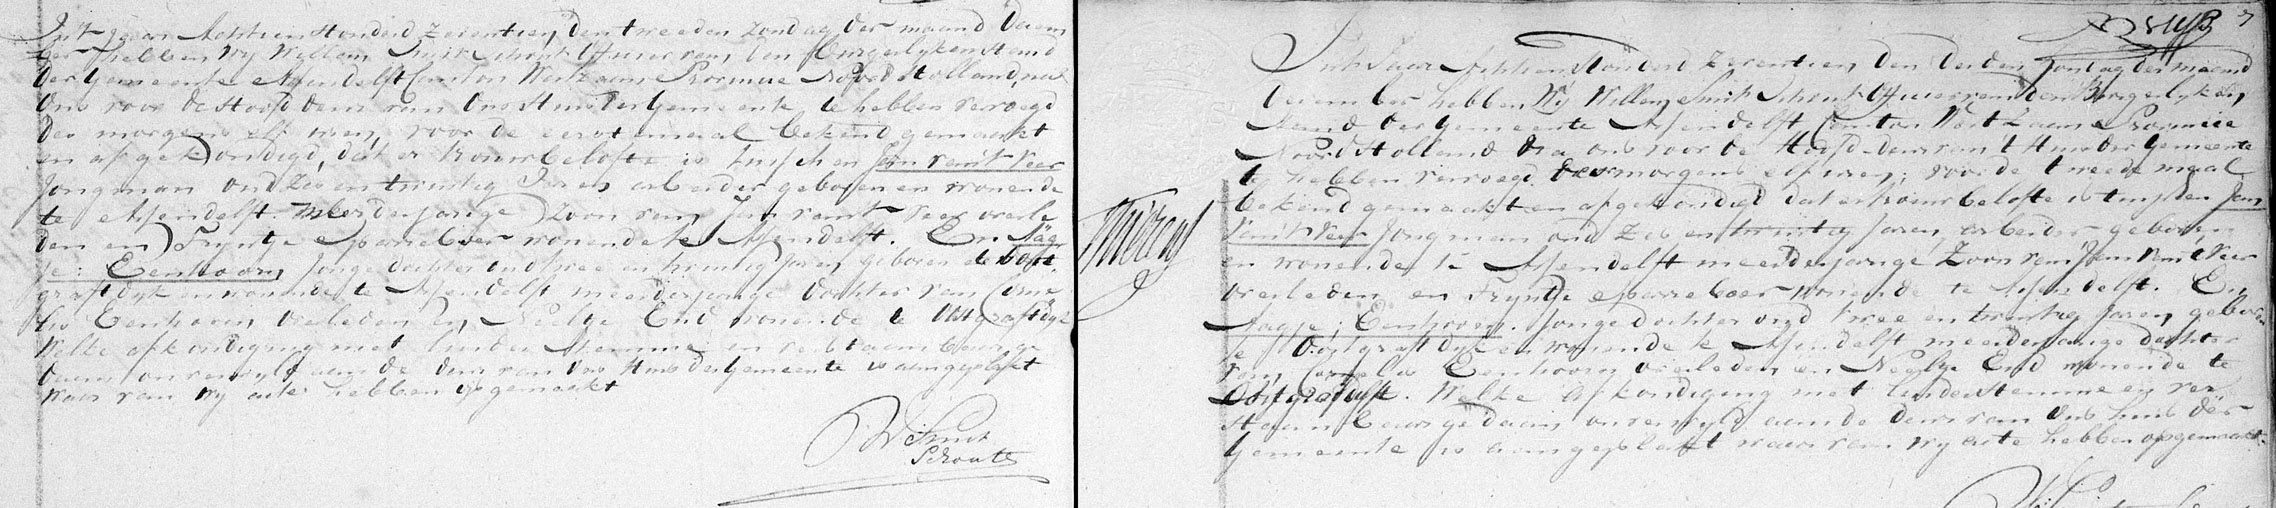 Int Jaar Achtien Honderd Zeventien, den tweeden Zondag der maand Decem
ber hebben Wy Willem Smit Schout Officier van den Burgerlyken Stand
der gemeente Assendelft Canton Westzaan Provincie Noord Holland, na
ons voor de Hoofd deur van Ons Huis der gemeente te hebben vervoegd
des morgens elf uren, voor de eerste maal bekend gemaakt
en afgekondigd, dat er trouwbelofte is tusschen Jan van't Veer
Jongman oud Zes en twintig Jaren arbeider geboren en wonende
te Assendelft. Meerderjarige Zoon van Jan van't Veer overle
den en Tryntje wonende te Assendelft. En Aag
je: Eenhoorn, Jonge dochter oud twee en twintig Jaren, geboren te Oost
graftdyk en wonende te Assendelft meerderjarige dochter van Corne
lis Eenhoorn, Overleden en, Neeltje End wonende te Oostgraftdyk
Welke afkondiging met luider stemme en verstaanbaar ge
daan onverwyld aan de deur van Ons Huis der Gemeente is aangeplakt
waar van wy acte hebben opgemaakt
W Smit
Schout
7
Int Jaar Achtien Honderd Zeventien, den derden Zondag der maand
December hebben Wy Willem Smit Schout Officier van den Burgerlyken
Stand der gemeente Assendelft Canton Westzaan Provincie
Noord Holland Na ons voor de Hoofd-deur van 't Huis der gemeente
te hebben vervoegd des morgens elf uren; voor de tweede maal
bekend gemaakt en afgekondigd dat er trouwbelofte is tusschen Jan
van't Veer Jongman oud Zes en twintig Jaren, arbeider geboren
en wonende te Assendelft meerderjarige Zoon van Jan van't Veer
overleden en Tryntje wonende te Assendelft. En
Aagje: Eenhoorn. Jonge dochter oud twee en twintig Jaren, geboren
te Oostgraftdyk en wonende te Assendelft meerderjarige dochter
van Cornelis Eenhoorn overleden en Neeltje End wonende te
Oostgraftdyk. Welke Afkondiging met luider stemme en ver
staanbaar gedaan onverwyld aan de deur van Ons huis der
Gemeente is aangeplakt waar van wy acte hebben opgemaakt.